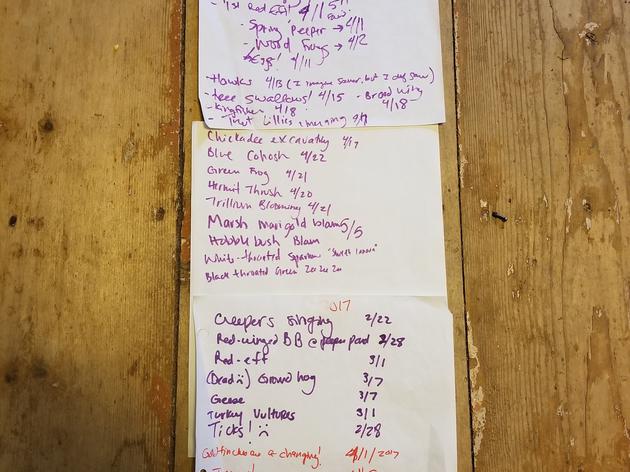 - 1st Red Eft 4/15
- Spring Peeper → 4/1
- Wood Frogs → 4/2
Eggs! 4/11
- Hawks 4/13 (I imagine sooner, but I only saw)
- tree swallows! 4/15 - Broad wing 4/18
- kingfisher 4/18
- Trout Lillies emerging 4/7
Chickadee excavating 4/17
Blue Cohosh 4/22
Green Frog 4/21
Hermit Thrush 4/20
Trillium Blooming 4/21
Marsh Marigold bloom 5/5
Hobble bush Bloom
White-throated Sparrow
Black throated Green Zee Zee Zee
017
Creepers singing 2/22
Red-winged BB @ beaver pond 2/28
Red-eft 3/1
(Dead :() Ground hog 3/7
Geese 3/7
Turkey Vultures 3/1
Ticks! :( 2/28
Goldfinches a changing! 4/1/2017